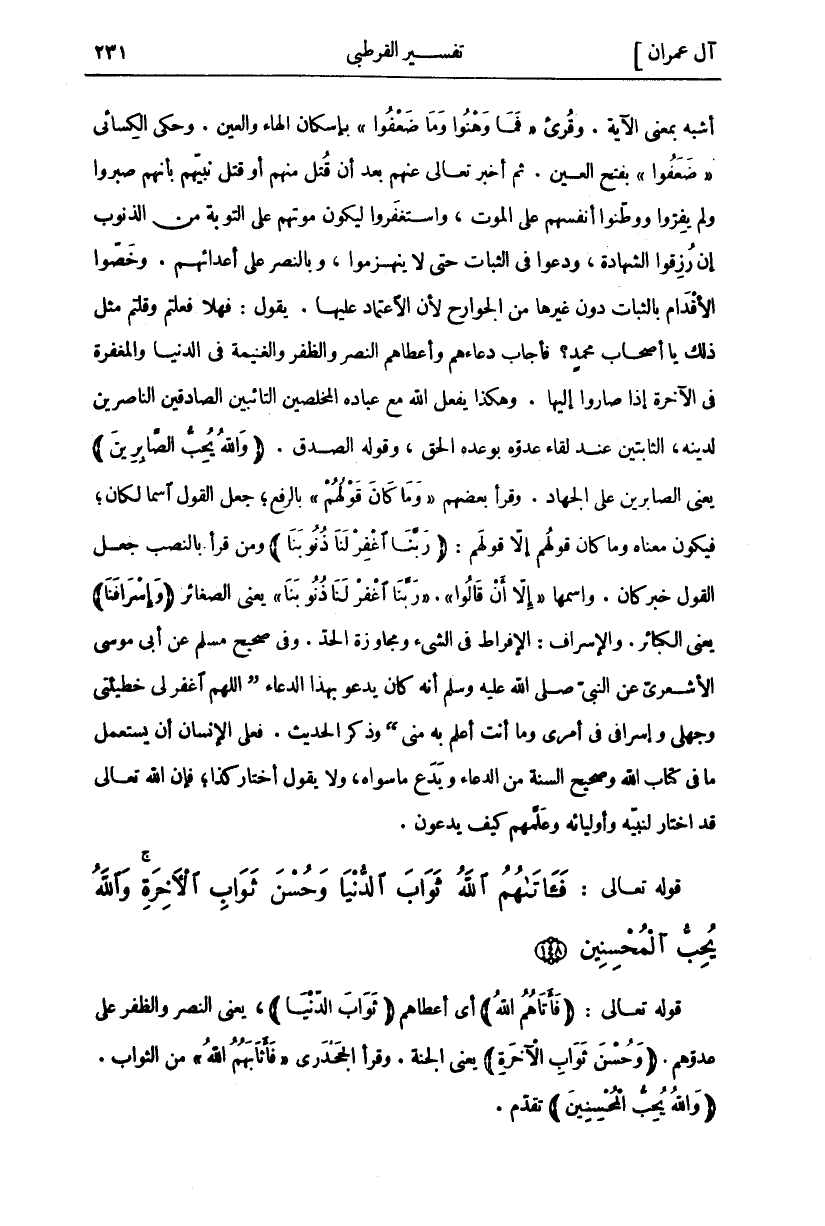 آل عمران ] تفسير القرطبى ٢٣١
أشبه بمعنى الآية . وقُرئ « فَمَا وَهْنُوا وَمَا ضَعْفُوا » بإسكان الهاء والعين . وحكى الكسائى
« ضَعَفُوا » بفتح العين . ثم أخبر تعالى عنهم بعد أن قُتل منهم أو قتل نبيّهم بأنهم صبروا
ولم يفِرّوا ووطّنوا أنفسهم على الموت ، واستغفَروا ليكون موتهم على التوبة من الذنوب
إن رُزِقوا الشهادة ، ودعوا فى الثبات حتى لا ينهزموا ، وبالنصر على أعدائهم . وخَصّوا
الأقْدام بالثبات دون غيرها من الجوارح لأن الاَعتماد عليها . يقول : فهلا فعلتم وقلتم مثل
ذلك يا أصحاب محمدٍ؟ فأجاب دعاءهم وأعطاهم النصر والظفر والغنيمة فى الدنيا والمغفرة
فى الآخرة إذا صاروا إليها . وهكذا يفعل الله مع عباده المخلصين التائبين الصادقين الناصرين
لدينه، الثابتين عند لقاء عدوّه بوعده الحق ، وقوله الصدق . ﴿ وَاللهُ يُحِبُّ الصَّابِرِينَ ﴾
يعنى الصابرين على الجهاد . وقرأ بعضهم « وَمَا كَانَ قَوْلُهُمْ » بالرفع؛ جعل القول اَسما لكان؛
فيكون معناه وما كان قولُهم إلّا قولَهم : ﴿ رَبَّنَا اَغْفِرْ لَنَا ذُنُوبَنَا ﴾ ومن قرأ بالنصب جعل
القول خبر كان . واسمها « إِلَّا أَنْ قَالُوا» . «رَبَّنَا اَغْفِرْ لَنَا ذُنُوبَنَا» يعنى الصغائر ﴿وَإِسْرَافَنَا﴾
يعنى الكبائر . والإسراف : الإفراط فى الشىء ومجاوزة الحدّ . وفى صحيح مسلم عن أبى موسى
الأشعرىّ عن النبىّ صلى الله عليه وسلم أنه كان يدعو بهذا الدعاء " اللهم اَغفر لى خطيئتى
وجهلى وإسرافى فى أمرى وما أنت أعلم به منى " وذكر الحديث . فعلى الإنسان أن يستعمل
ما فى كتاب الله وصحيح السنة من الدعاء ويَدَع ما سواه، ولا يقول أختار كذا؛ فإن الله تعالى
قد اختار لنبيّه وأوليائه وعَلّمهم كيف يدعون .
قوله تعالى : فَـَٔاتَىٰهُمُ ٱللَّهُ ثَوَابَ ٱلدُّنْيَا وَحُسْنَ ثَوَابِ ٱلْأَخِرَةِ ۚ وَٱللَّهُ
يُحِبُّ ٱلْمُحْسِنِينَ ﴿١٤٨﴾
قوله تعالى : ﴿فَأَتَاهُمُ اللهُ﴾ أى أعطاهم ﴿ ثَوَابَ الدُّنْيَا ﴾، يعنى النصر والظفر على
عدوّهم. ﴿وَحُسْنَ ثَوَابِ الْآخِرَةِ﴾ يعنى الجنة . وقرأ الجَحْدَرى «فَأَثَابَهُمُ اللهُ» من الثواب .
﴿ وَاللهُ يُحِبُّ الْمُحْسِنِينَ ﴾ تقدّم .